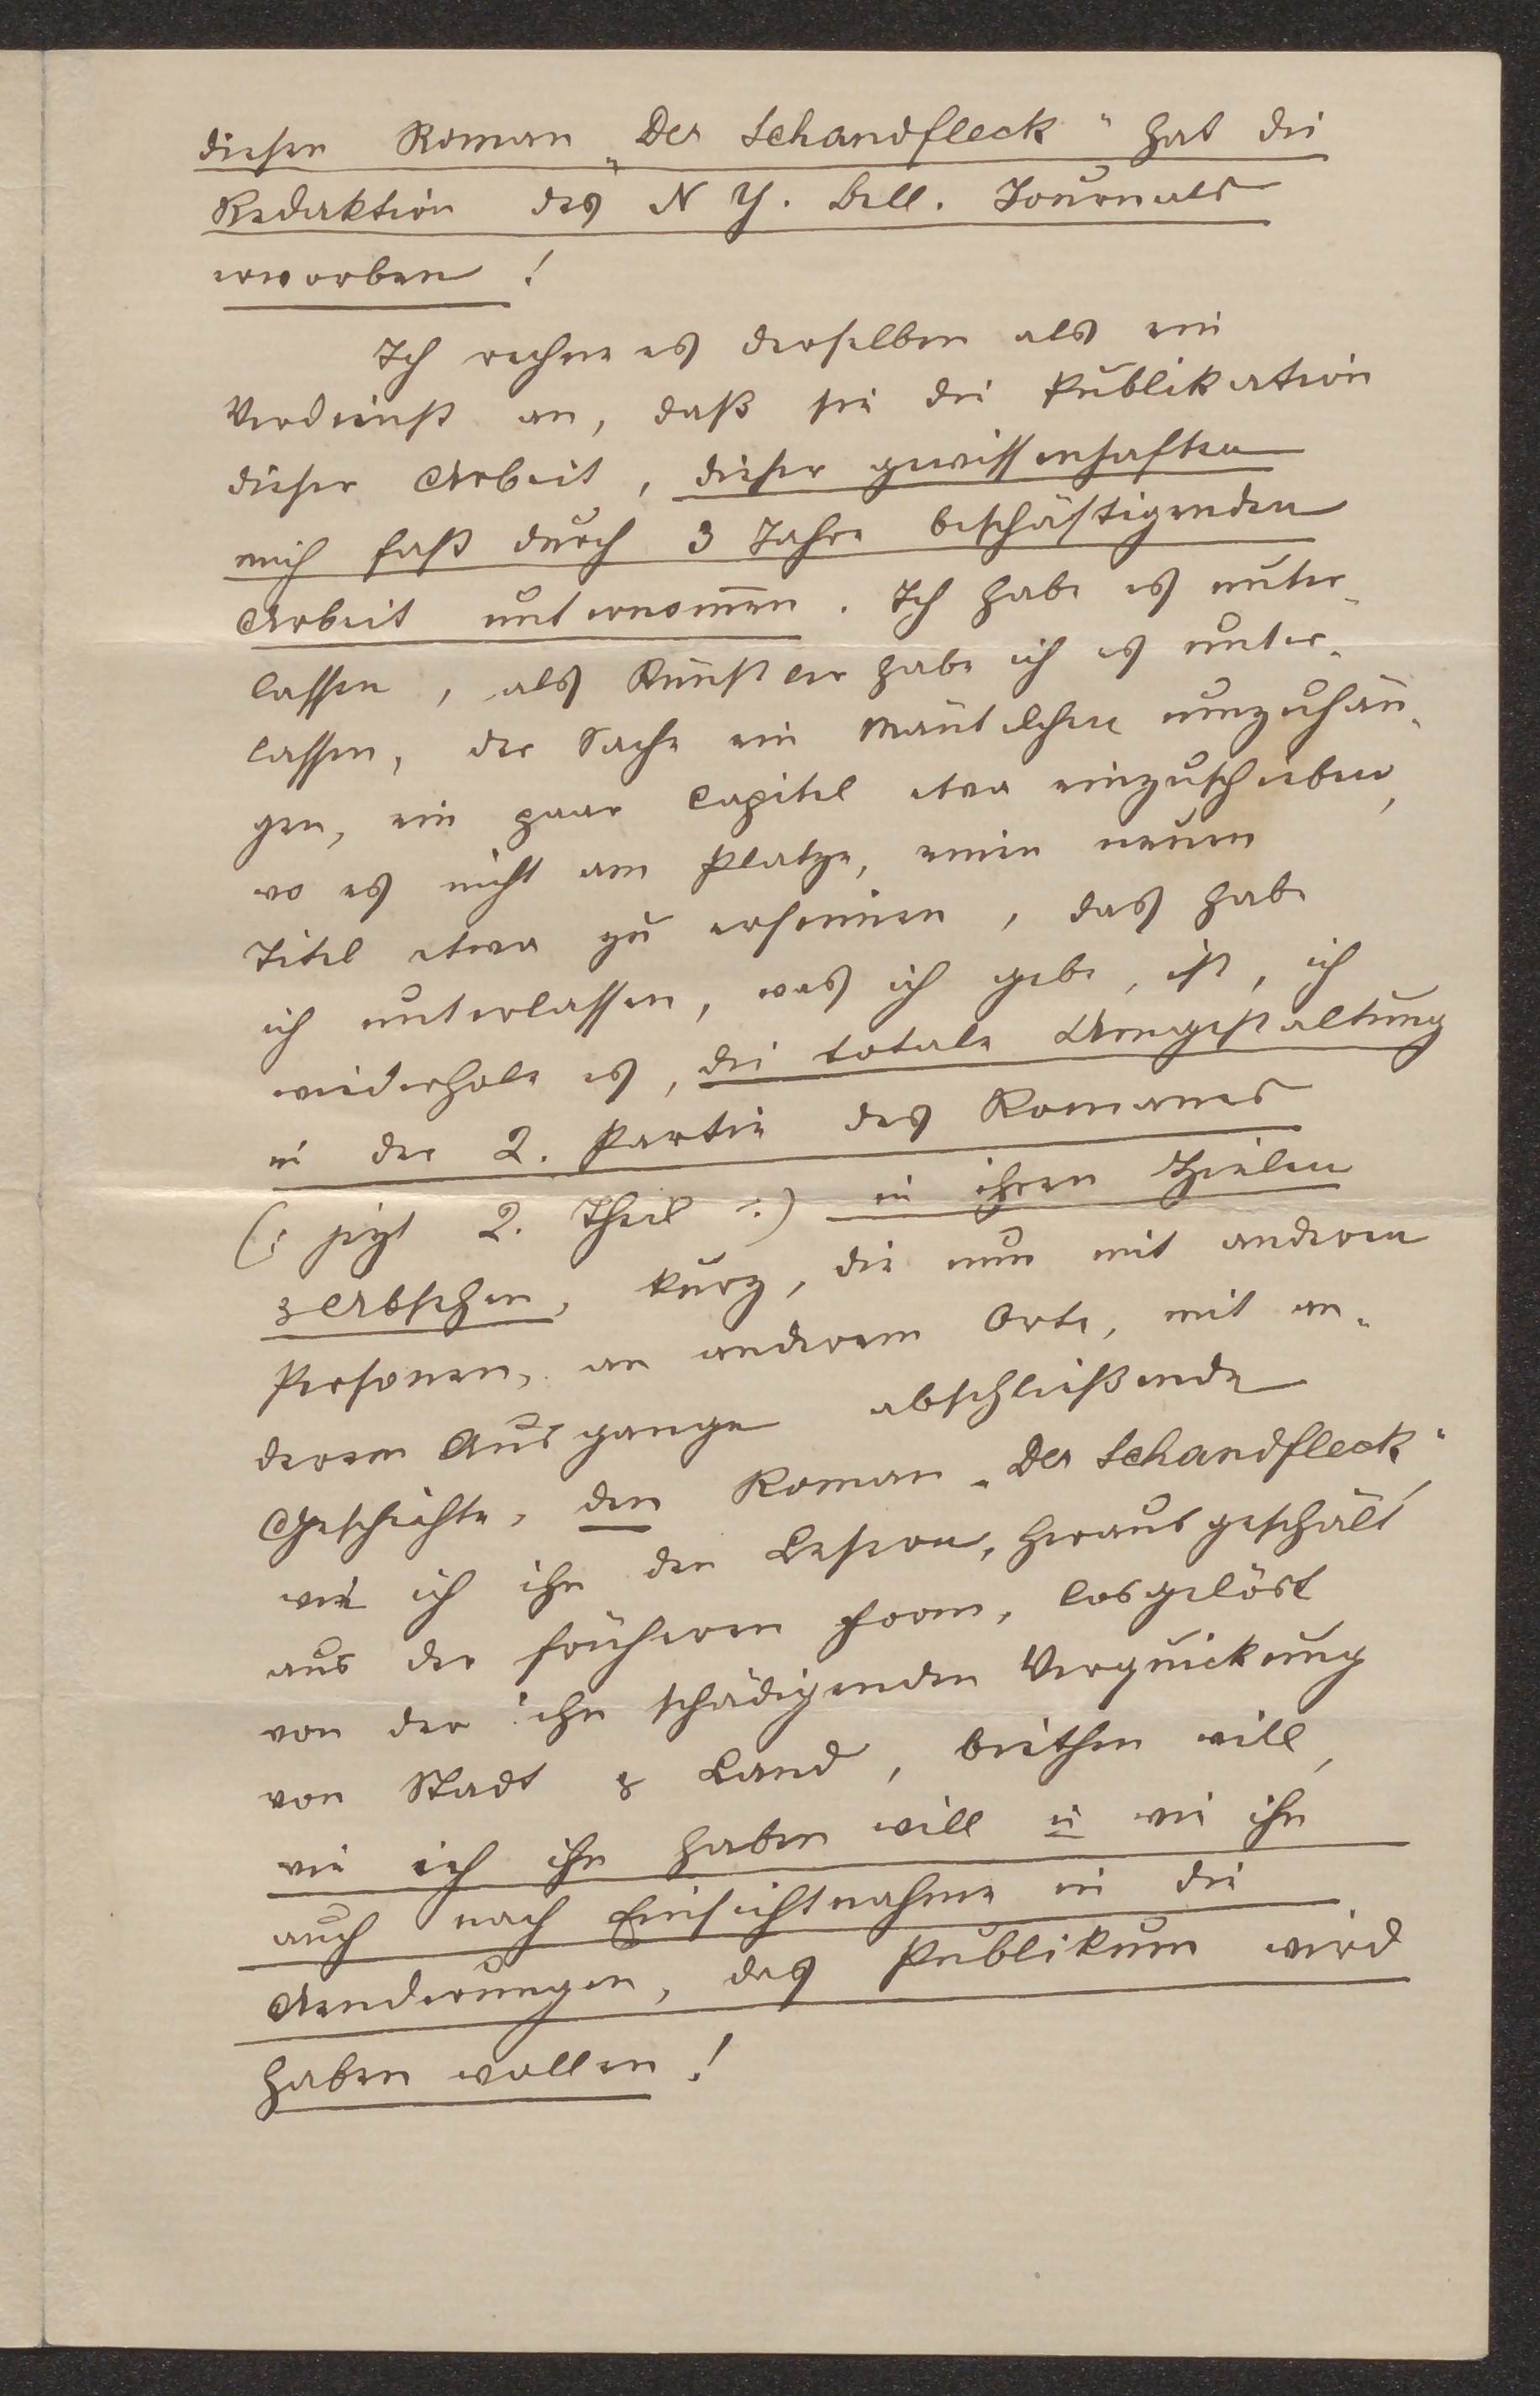 diesen Roman „Der Schandfleck“ hat die
Redaktion des N Y. Bell. Journals
erworben!
Ich rechne es derselben als ein
Verdienst an, daß sie die Publikation
dieser Arbeit, dieser gewissenhaften
mich fast durch 3 Jahre beschäftigenden
Arbeit unternom̅en. Ich habe es unter-
lassen, als Künstler habe ich es unter-
lassen, der Sache ein Mäntelchen umzuhän-
gen, ein paar Capitel etwa einzuschieben,
wo es nicht am Platze, einen neuen
Titel etwa zu ersinnen, das habe
ich unterlassen, was ich gebe, ist, ich
wiederhole es, die totale Umgestaltung
in der 2. Partie des Romanes
(: jezt 2. Theil :) in ihren Zielen
& Absehen, kurz, die nun mit anderen
Personen, an anderem Orte, mit an-
derem Ausgange abschließende
Geschichte, den Roman „Der Schandfleck“,
wie ich ihn den Lesern, herausgeschält
aus der früheren Form, losgelöst
von der ihn schädigenden Verquickung
von Stadt & Land, biethen will,
wie ich ihn haben will u wie ihn
auch nach Einsichtnahme in die
Aenderungen, das Publikum wird
haben wollen!